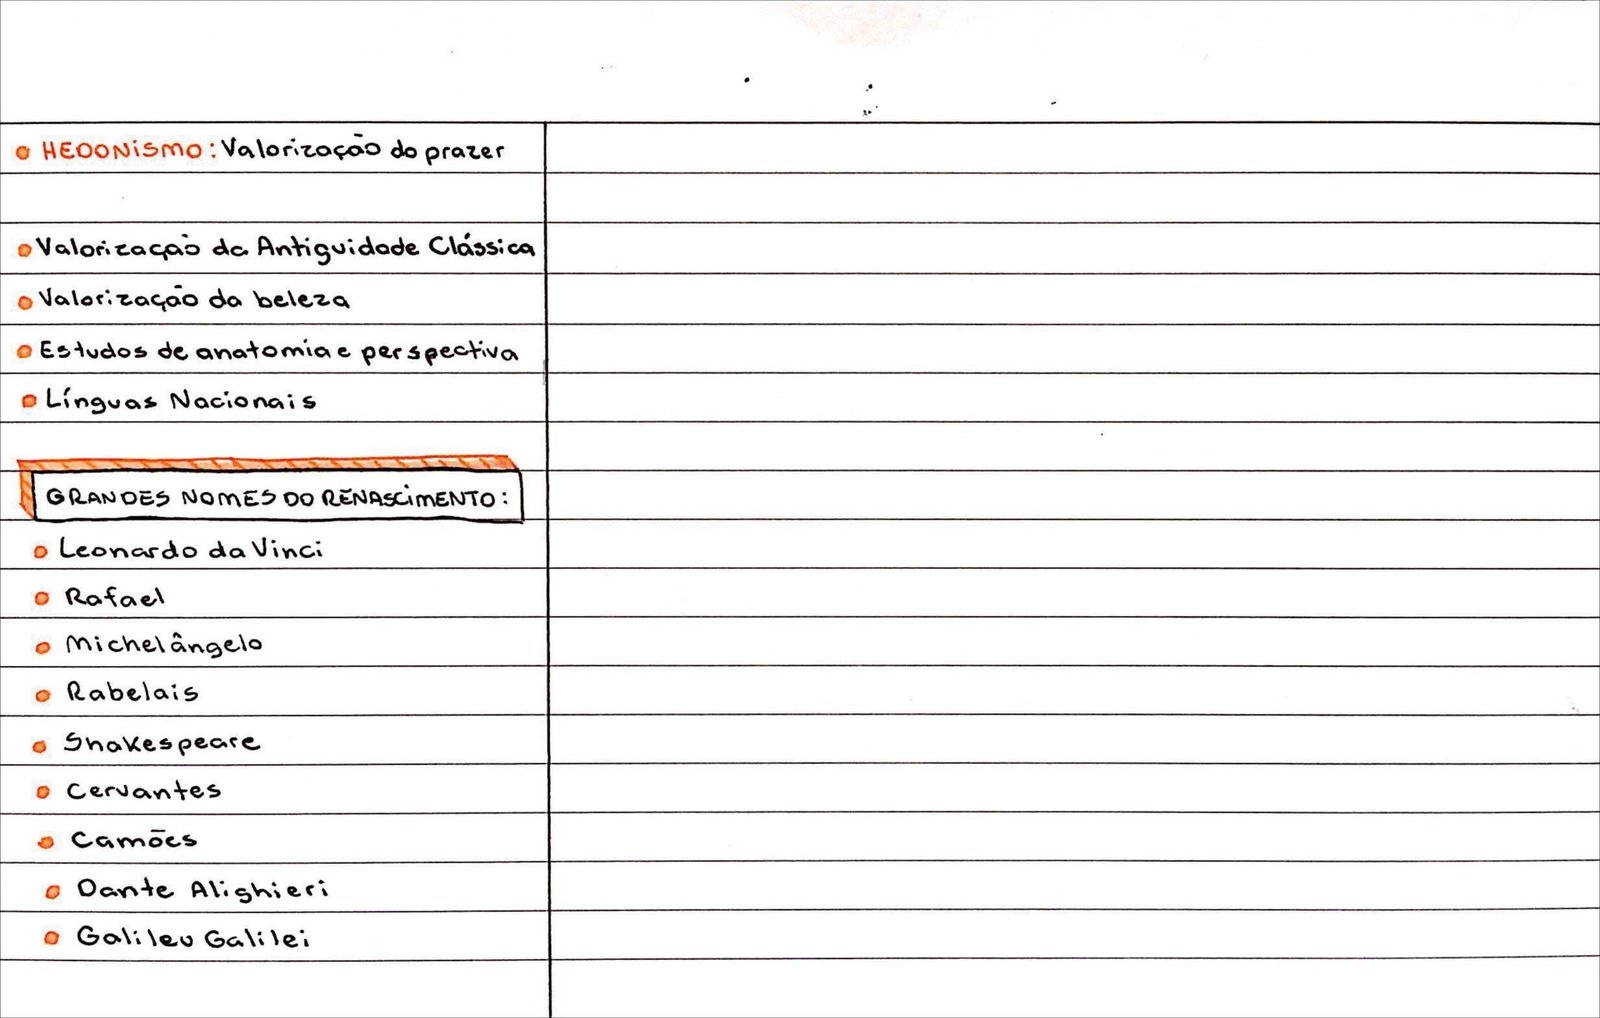 HEDONISMO: Valorização do prazer
Valorização da Antiguidade Clássica
Valorização da beleza
Estudos de anatomia e perspectiva
Línguas Nacionais
GRANDES NOMES DO RENASCIMENTO:
Leonardo da Vinci
Rafael
Michelângelo
Rabelais
Shakespeare
Cervantes
Camões
Dante Alighieri
Galileu Galilei